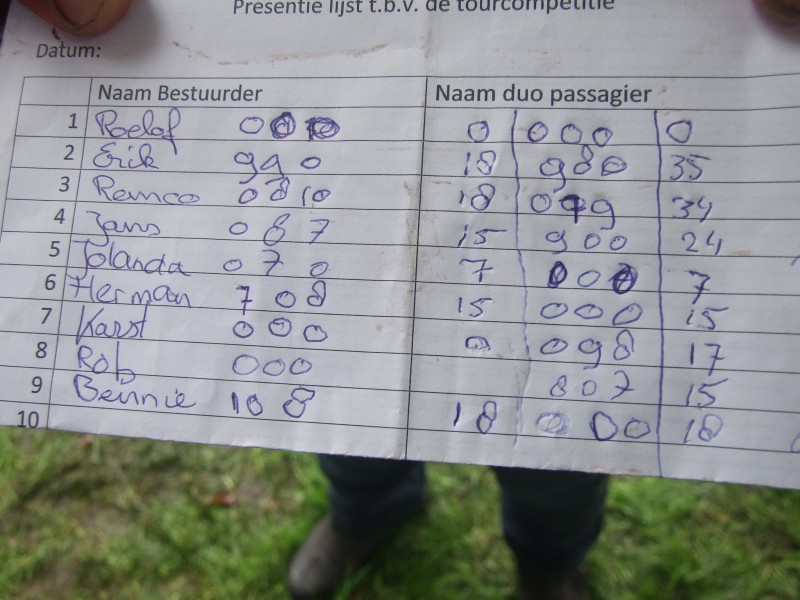 Presentie lijst t.b.v. de tourcompetitie
Datum:
Naam Bestuurder Naam duo passagier
1 Roelof 0 0 0 0 0 0 0
2 Erik 9 9 0 18 9 8 0 35
3 Remco 0 8 10 18 0 7 9 34
4 Jans 0 8 7 15 9 0 0 24
5 Jolanda 0 7 0 7 0 0 0 7
6 Herman 7 0 8 15 0 0 0 15
7 Karst 0 0 0 0 0 9 8 17
8 Rob 0 0 0 8 0 7 15
9 Bennie 10 8 18 0 0 0 18
10